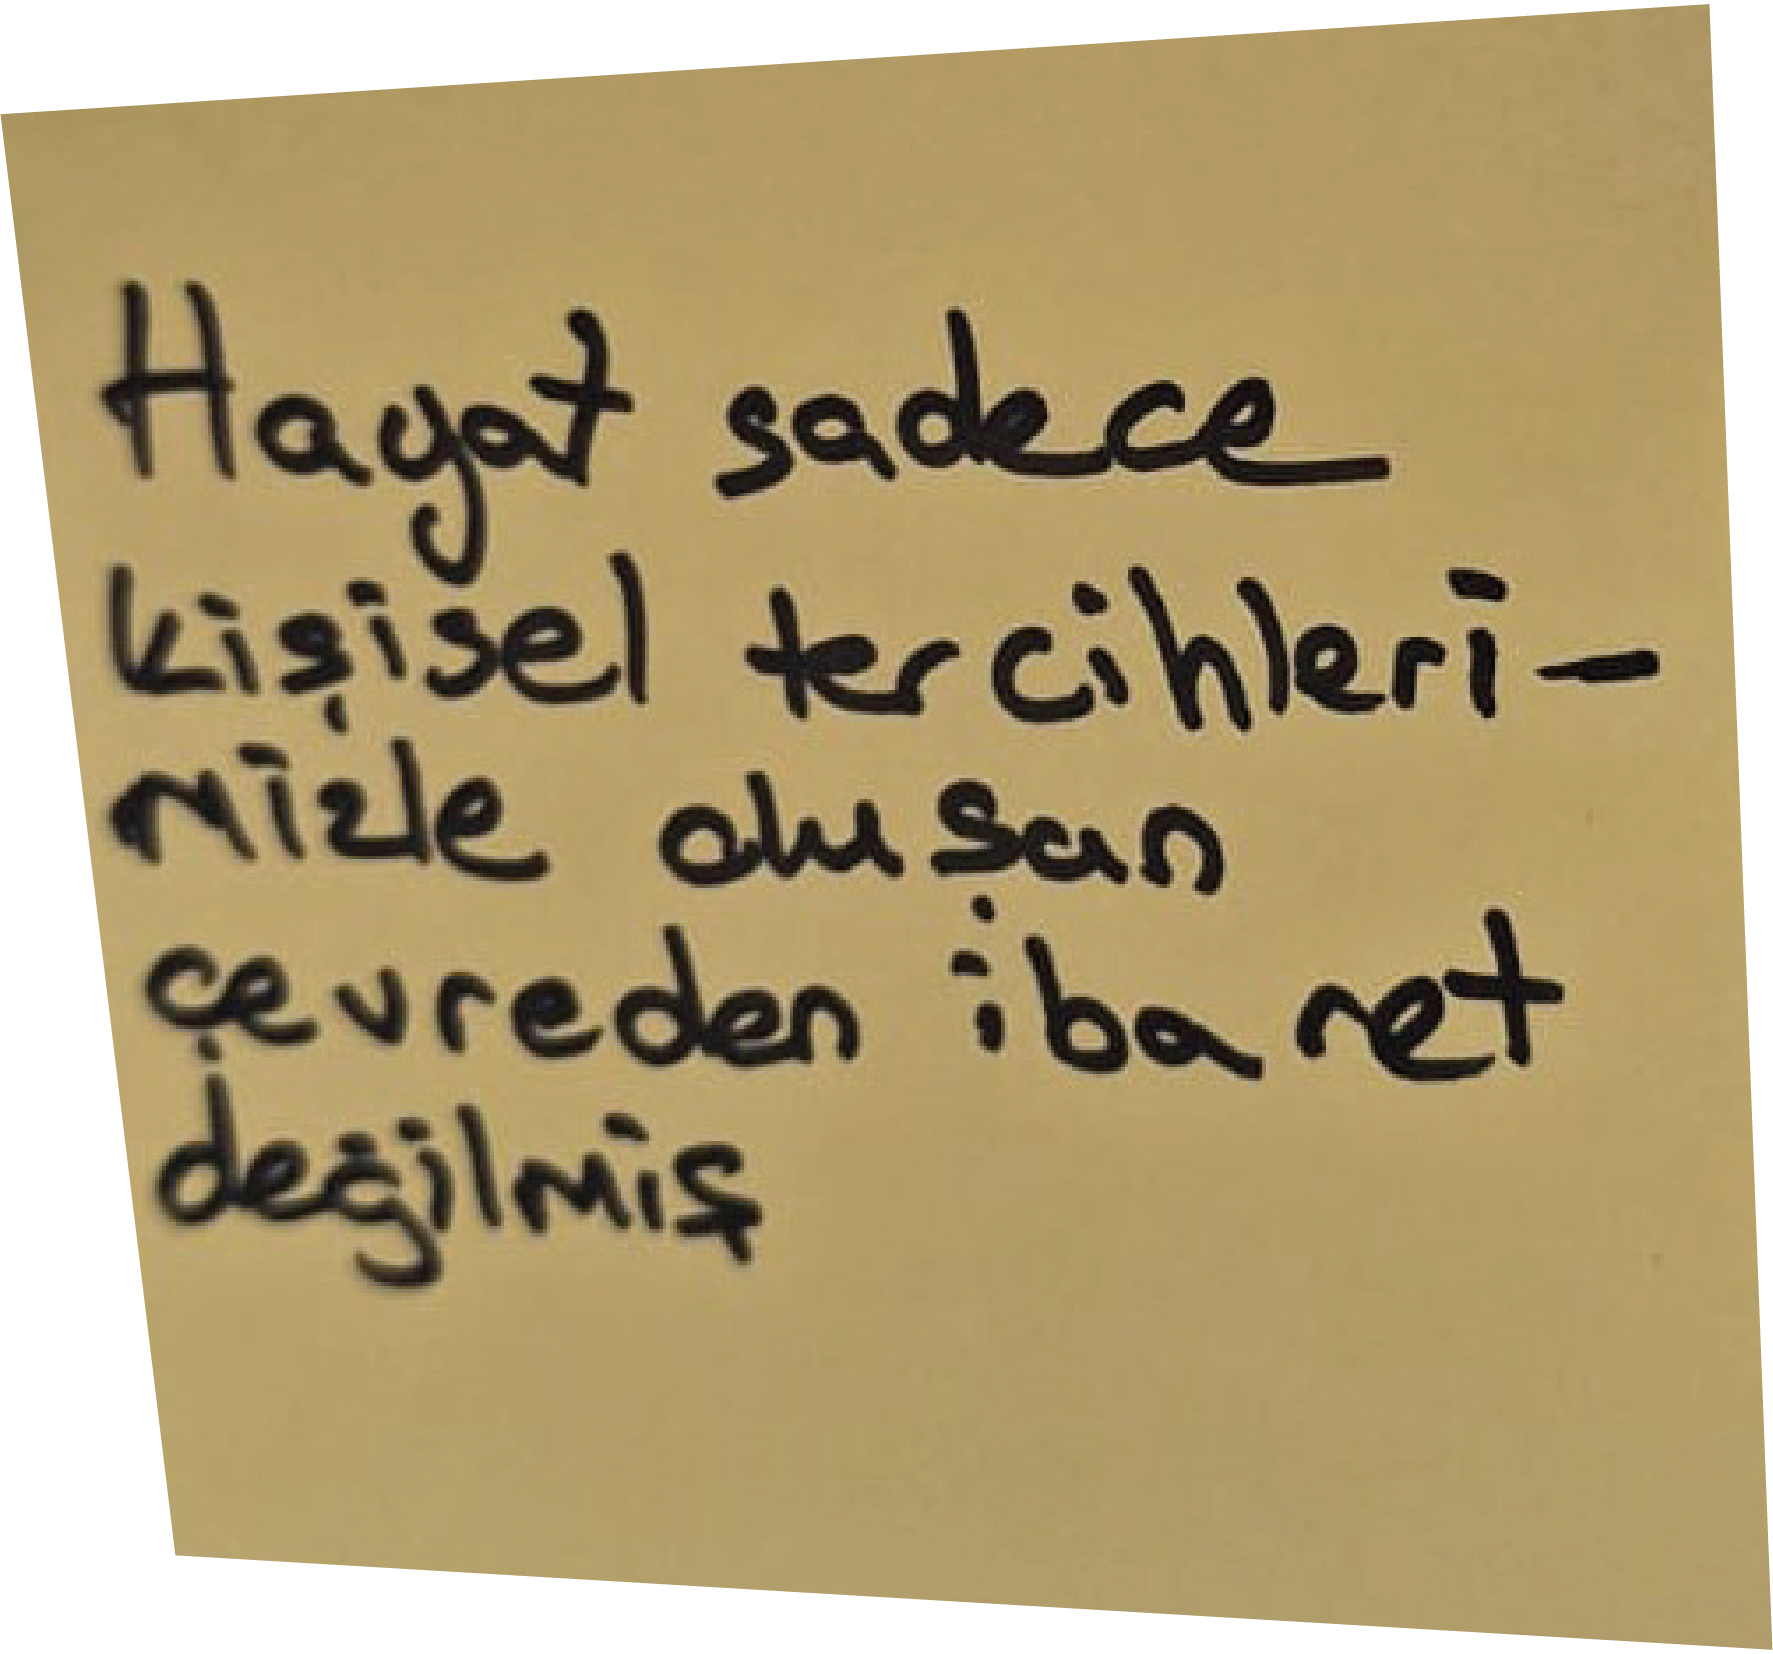 Hayat sadece
kişisel tercihleri-
mizle oluşan
çevreden ibaret
değilmiş